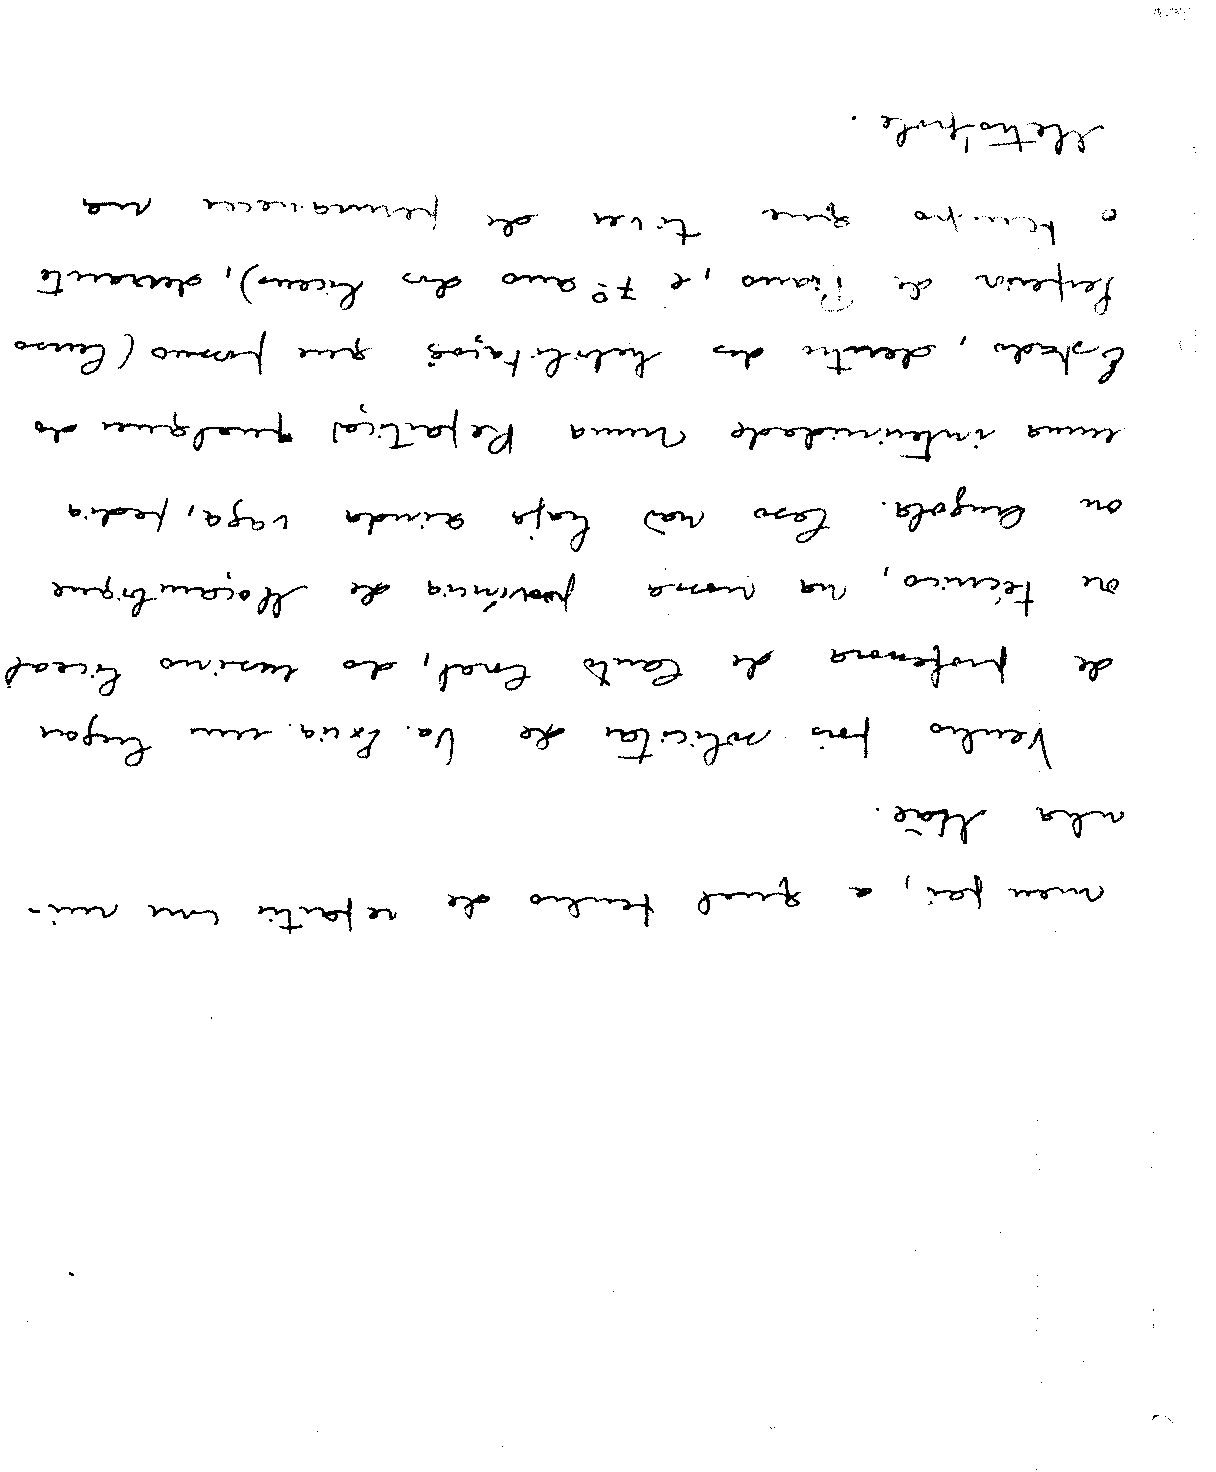 meu pai, a qual tenho de repartir com mi-
nha Mãe.
Venho pois solicitar de Va. Excia. um lugar
de professora de Canto Coral, do ensino liceal
ou técnico, na nossa província de Moçambique
ou Angola. Caso não haja ainda vaga, pedia
uma interinidade numa Repartição qualquer do
Estado, dentro das habilitações que possuo (Curso
Superior de Piano, e 7º ano dos liceus), durante
o tempo que tiver de permanecer na
Metrópole.